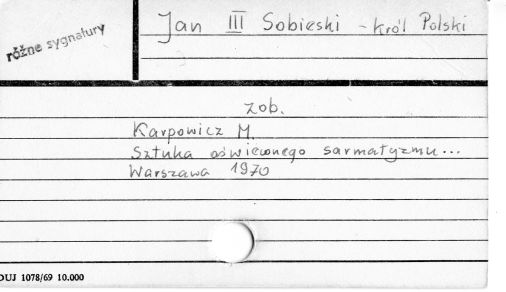 Jan III Sobieski - Król Polski
różne sygnatury
zob.
Karpowicz M.
Sztuka oświeconego sarmatyzmu...
Warszawa 1970
DUJ 1078/69 10.000